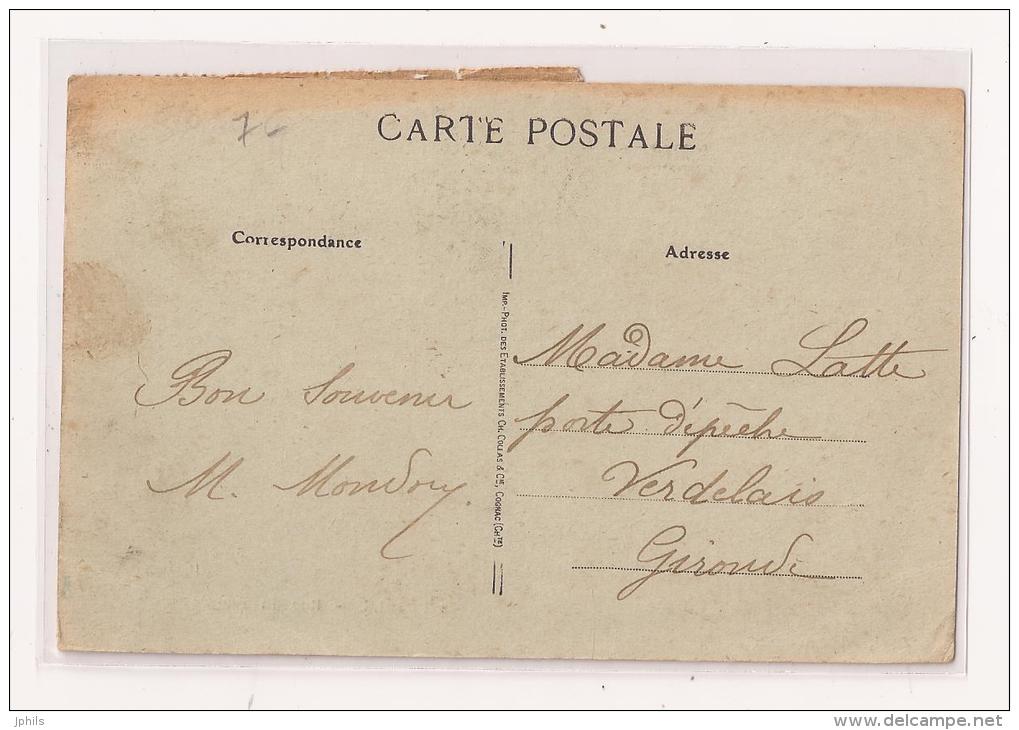 CARTE POSTALE
Correspondance
Bon Souvenir
M. Mondory
IMP.-PHOT. DES ETABLISSEMENTS CH. COLLAS & Cie, COGNAC (CHTE)
Adresse
Madame Latte
porte dépêche
Verdelais
Gironde
jphils
www.delcampe.net